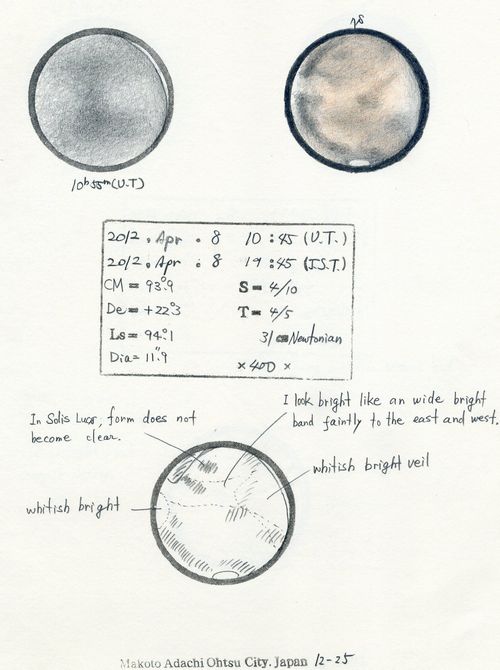 10ʰ55ᵐ(U.T)
2012. Apr. 8 10:45 (U.T.)
2012. Apr. 8 19:45 (J.S.T.)
CM= 93.°9 S= 4/10
De= +22.°3 T= 4/5
Ls= 94.°1 31cm Newtonian
Dia= 11."9 ×400×
I look bright like an wide bright
band faintly to the east and west.
In Solis Lucas, form does not
become clear.
whitish bright veil
whitish bright
Makoto Adachi Ohtsu City. Japan 12-25